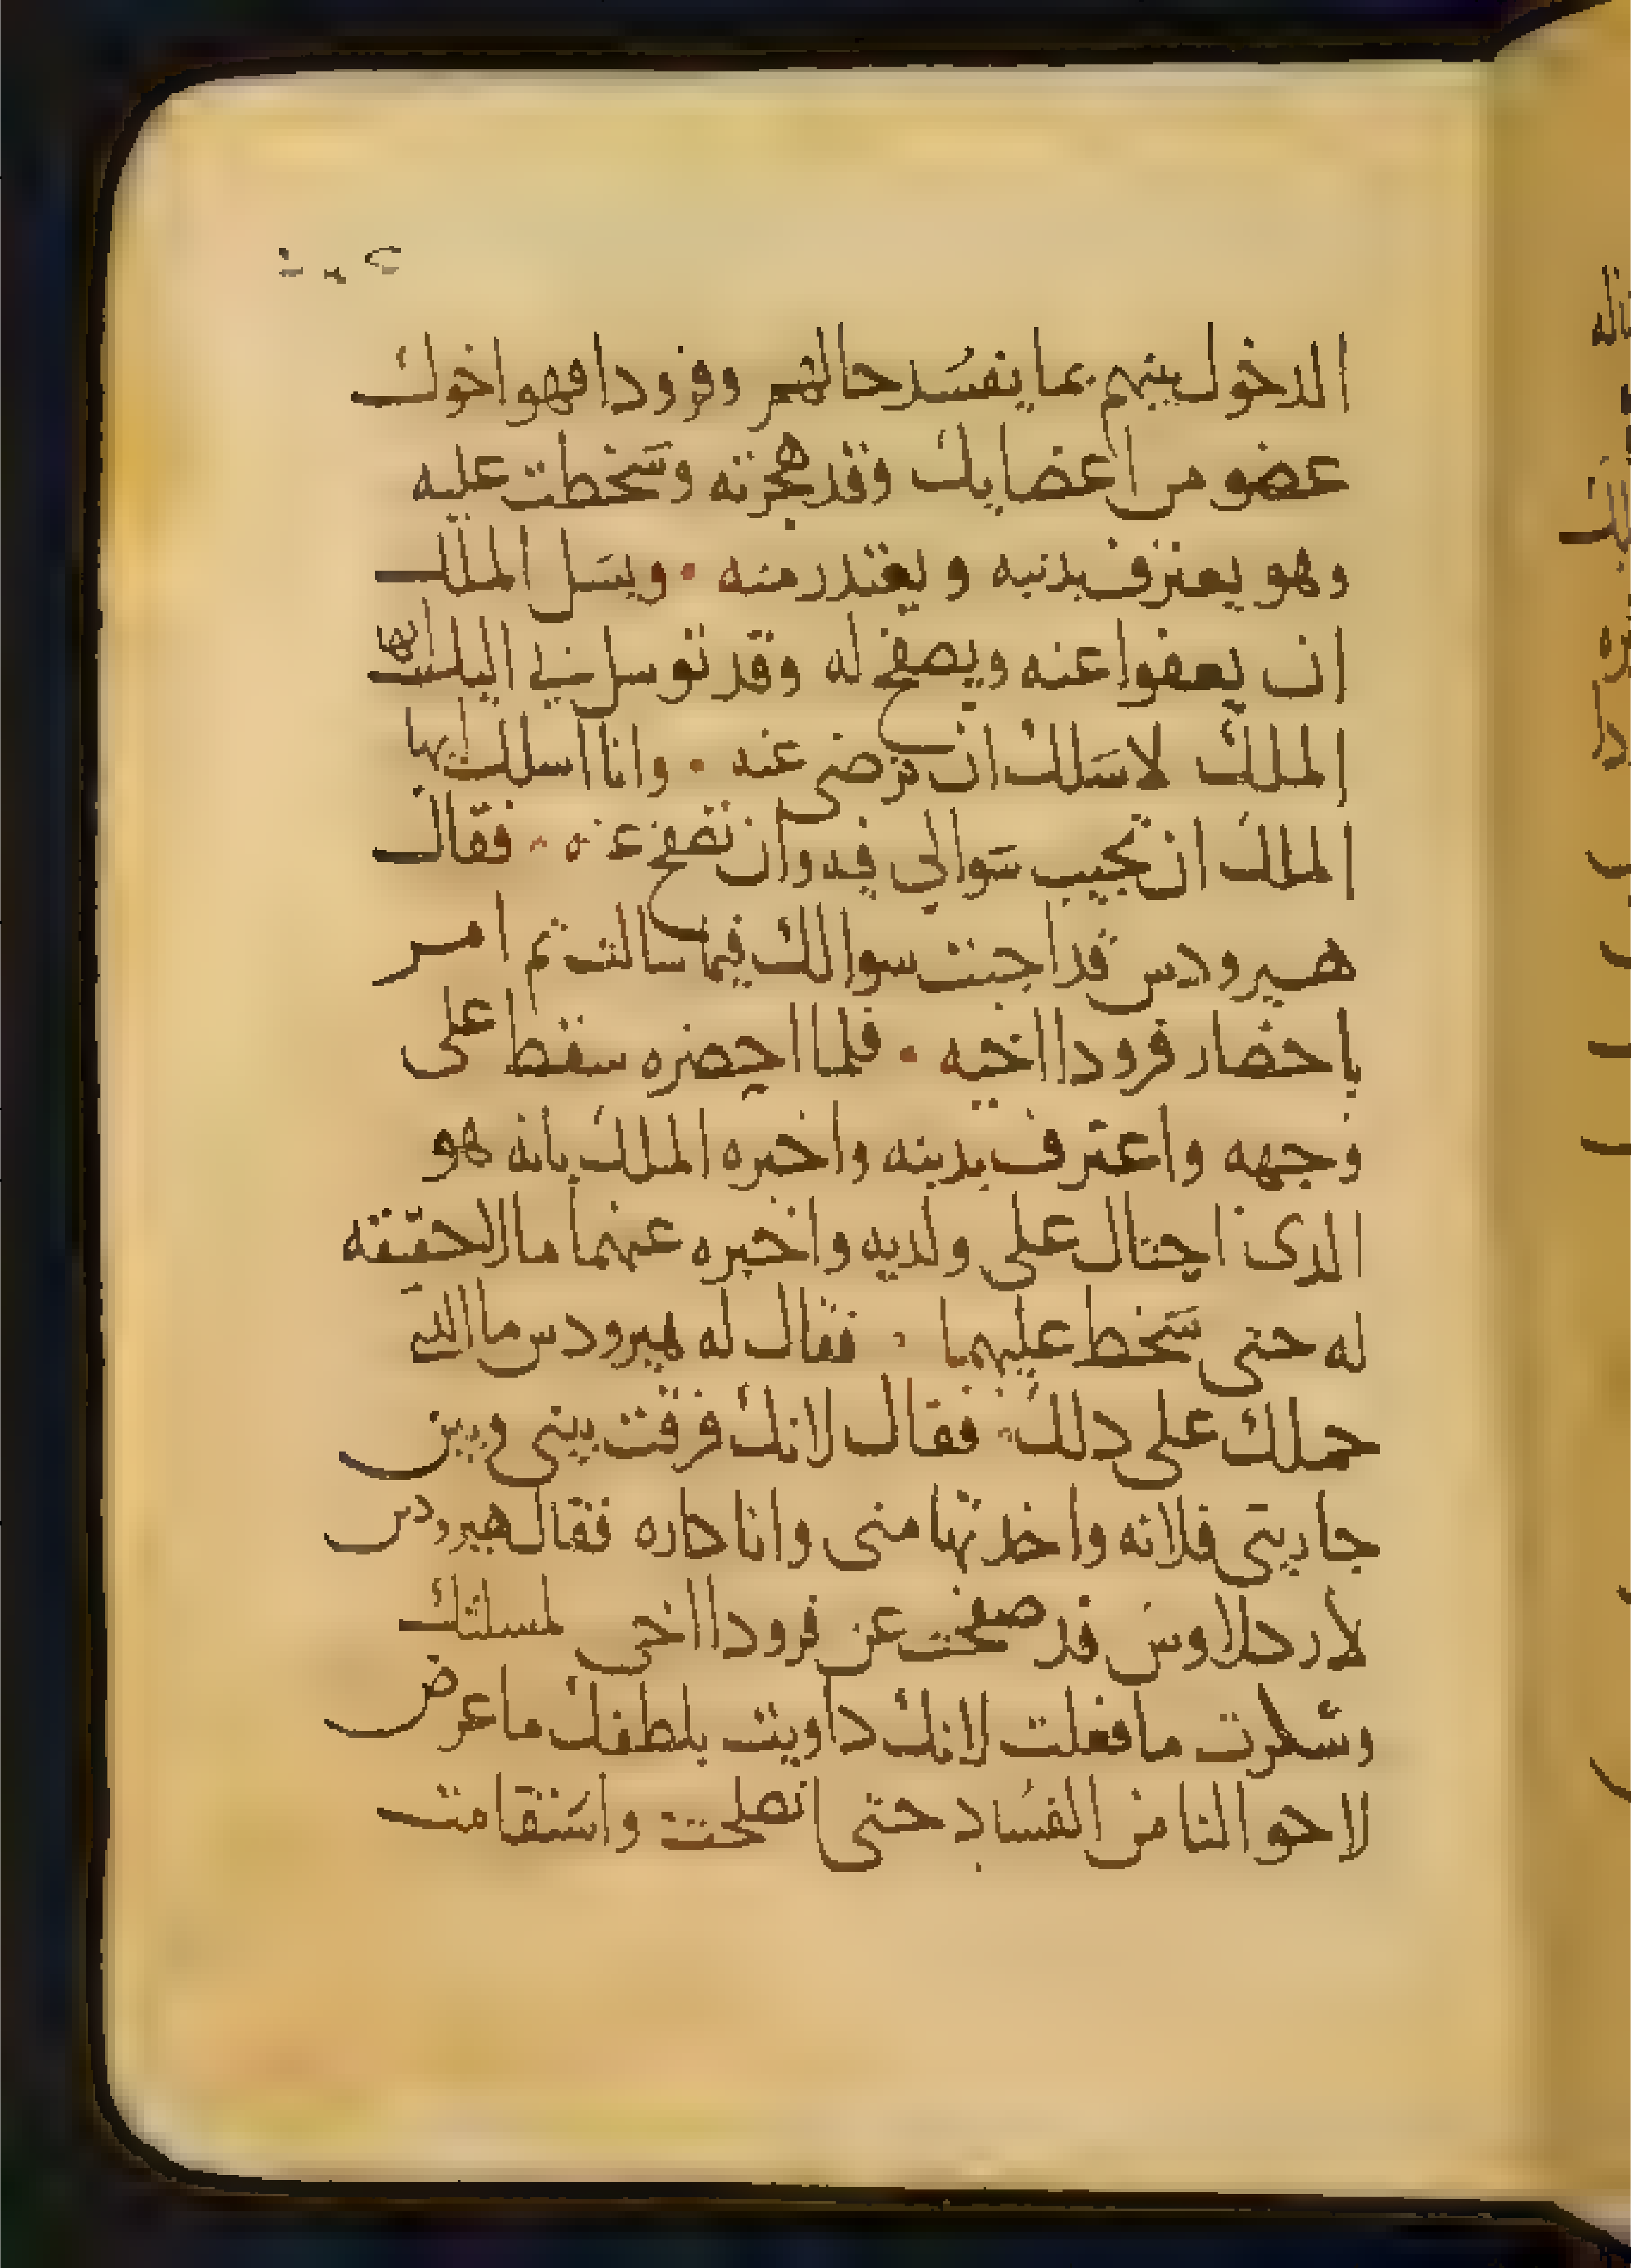 الدخول بينهم بما يفسد حالهم وفرودا فهو اخوك
عضو من اعضايك وقد هجرته وسخطت عليه
وهو يعترف بدنبه ويعتدر منه . ويسل الملك
ان يعفوا عنه ويصفح له وقد توسل بي اليك ايها
الملك لاسلك ان ترضى عنه . وانا اسلك ايها
الملك ان تجيب سوالي فيه وان تصفح عنه . فقال
هيرودس قد اجبت سوالك فيما سالت تم امر
باحضار فرودا اخيه . فلما احضره سقط على
وجهه واعترف بدنبه واخبره الملك بانه هو
الدى احتال على ولديه واخبره عنهما ما لا حقيقه
له حتى سخط عليهما . فقال له هيرودس ما الدي
حملك على دلك . فقال لانك فرقت بينى وبين
جاريتى فلانه واخدتها منى وانا كاره فقال هيرودس
لاركلاوس قد صفحت عن فرودا اخى لمسلتك
وشكرت ما فعلت لانك داويت بلطفك ما عرض
لاحوالنا من الفساد حتى انصلحت واستقامت